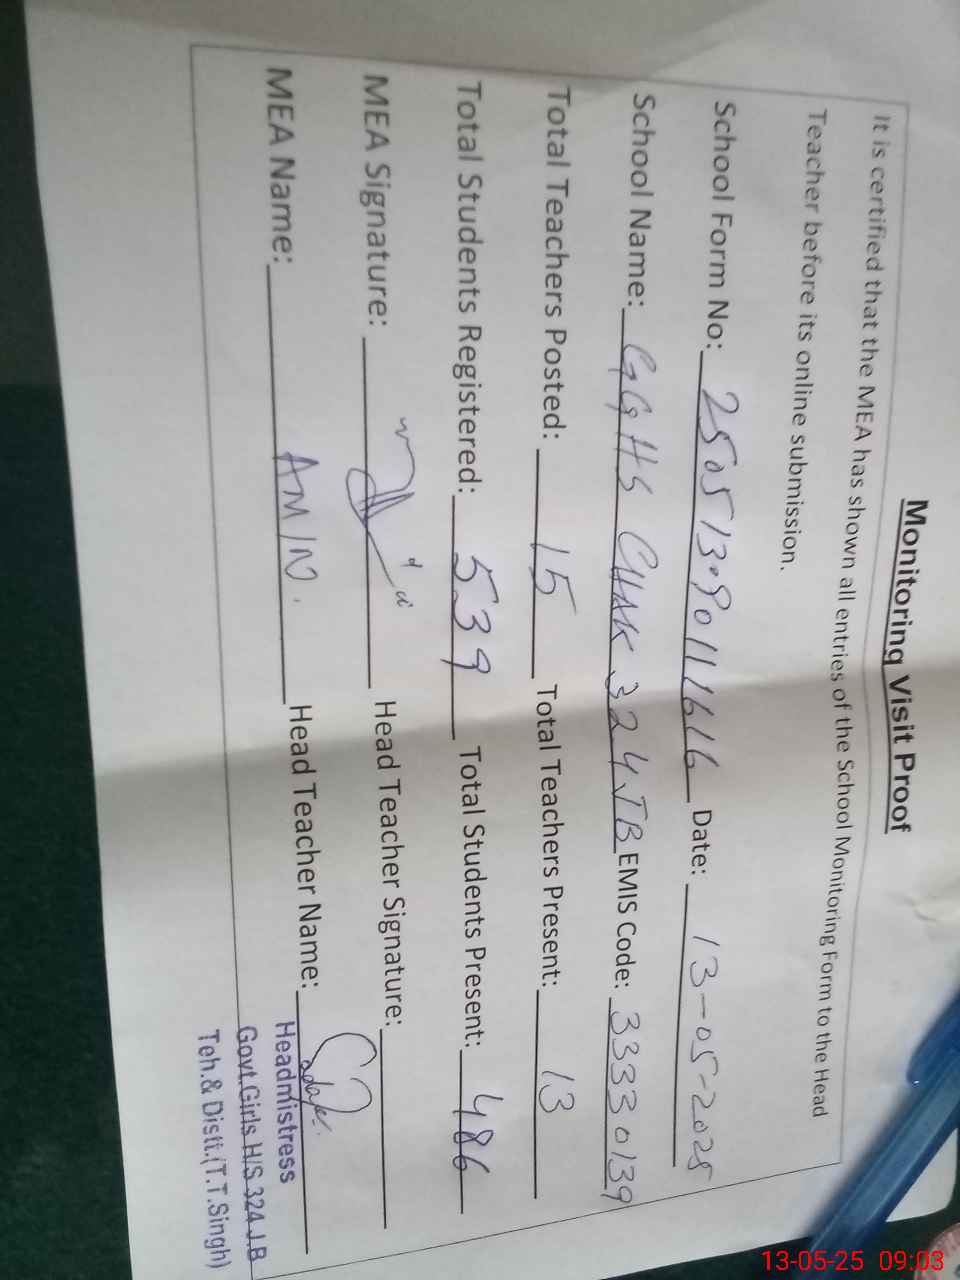 Monitoring Visit Proof
It is certified that the MEA has shown all entries of the School Monitoring Form to the Head
Teacher before its online submission.
School Form No: 250513-9011616 Date: 13-05-2025
School Name: GGHS CHAK 324 JB EMIS Code: 33330139
Total Teachers Posted: 15 Total Teachers Present: 13
Total Students Registered: 539 Total Students Present: 486
MEA Signature: Head Teacher Signature:
MEA Name: AMIN. Head Teacher Name:
Headmistress
Govt.Girls H/S 324 J.B
Teh.& Distt.(T.T.Singh)
13-05-25 09:03